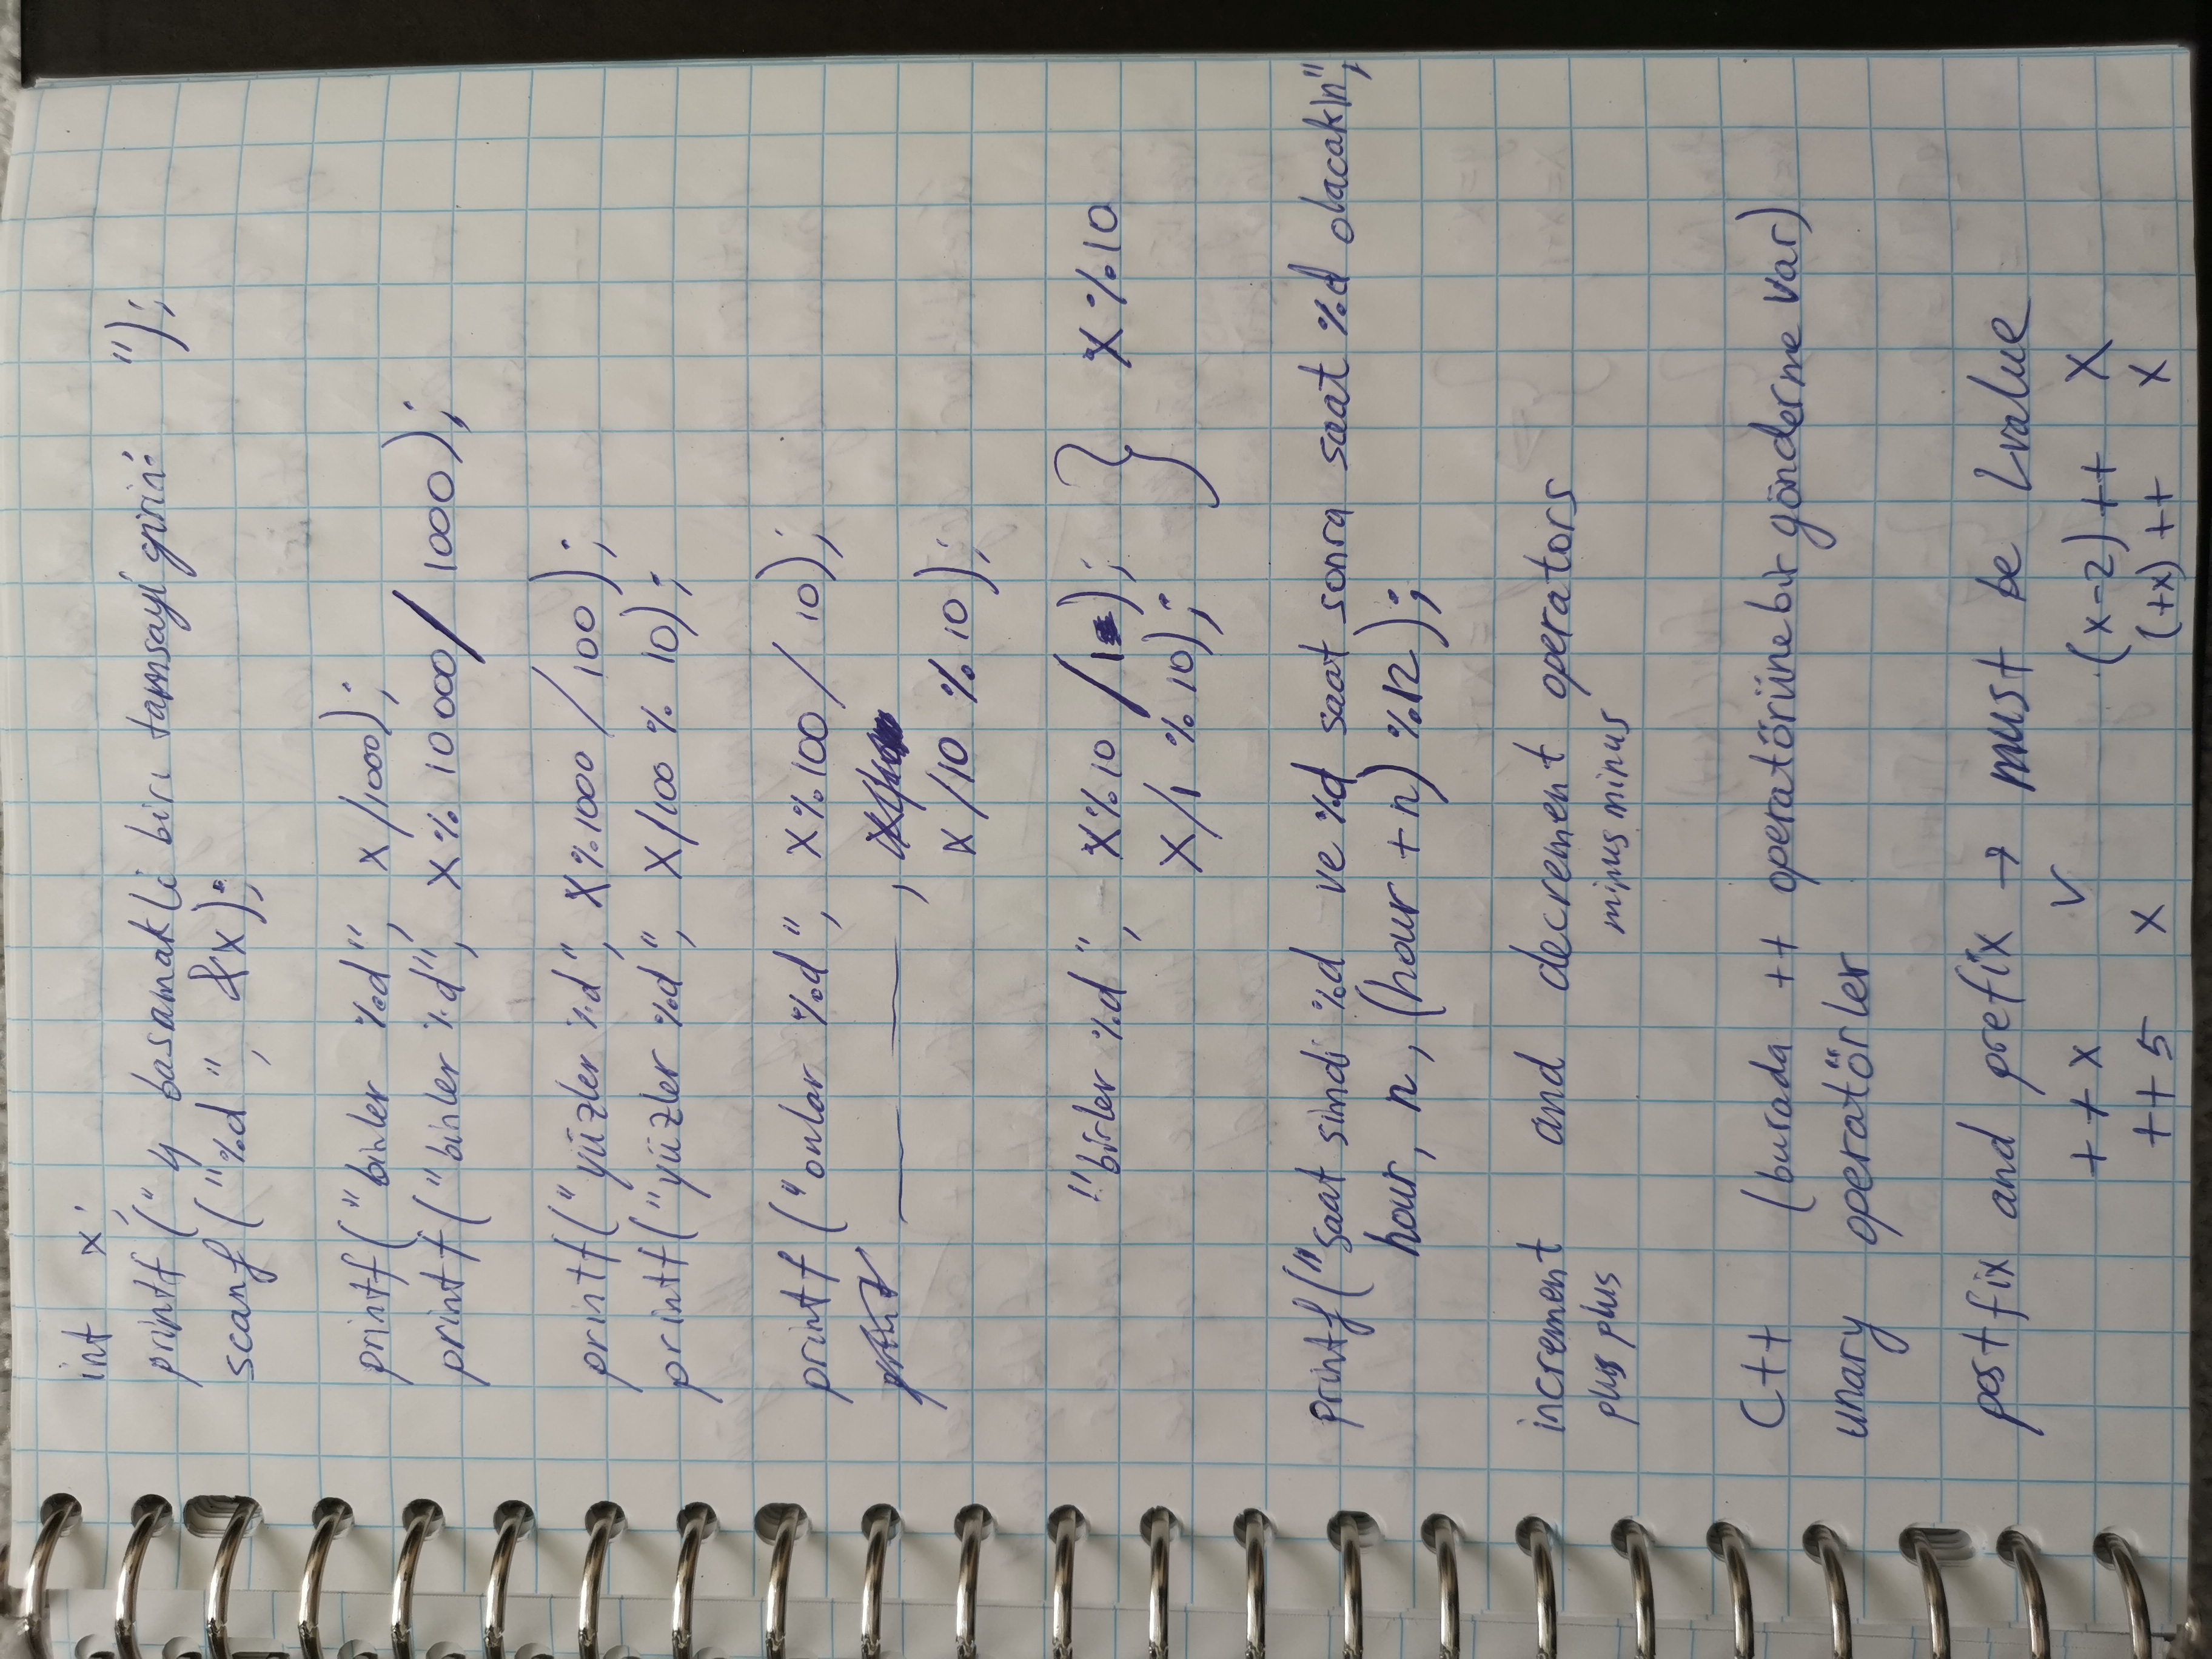 int x;
printf (" 4 basamakli biri tamsayi girin: ");
scanf ("%d ", &x);
printf("binler %d", x/1000);
printf("binler %d", x% 10000/ 1000);
printf("yüzler %d", x%1000 / 100);
printf("yüzler %d", x/100 % 10);
printf ("onlar %d", x%100 / 10);
print ,
x /10 % 10);
"birler %d", x%10 /1); } x%10
x/1 % 10);
printf("saat simdi %d ve %d saat sonra saat %d olacak\n",
hour, n, (hour +n) %12);
increment and decrement operators
plus plus minus minus
C++ (burada ++ operatörüne bir gönderme var)
unary operatörler
postfix and prefix → must be Lvalue
++x ✓ (x-2)++ X
++5 X (+x)++ X